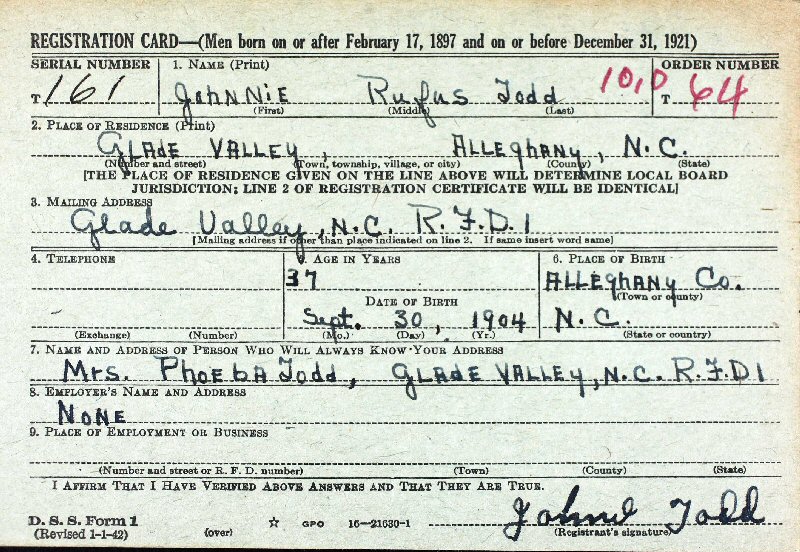 REGISTRATION CARD—(Men born on or after February 17, 1897 and on or before December 31, 1921)
SERIAL NUMBER 1. NAME (Print) ORDER NUMBER
T 161 JOHNNIE Rufus Todd 10,0 T 64
(First) (Middle) (Last)
2. PLACE OF RESIDENCE (Print)
GLADE VALLEY, ALLEGHANY, N.C.
(Number and street) (Town, township, village, or city) (County) (State)
[THE PLACE OF RESIDENCE GIVEN ON THE LINE ABOVE WILL DETERMINE LOCAL BOARD
JURISDICTION; LINE 2 OF REGISTRATION CERTIFICATE WILL BE IDENTICAL]
3. MAILING ADDRESS
Glade Valley, N.C. R.F.D1
[Mailing address if other than place indicated on line 2. If same insert word same]
4. TELEPHONE 5. AGE IN YEARS 6. PLACE OF BIRTH
37 ALLEGHANY Co.
DATE OF BIRTH (Town or county)
Sept. 30, 1904 N.C.
(Exchange) (Number) (Mo.) (Day) (Yr.) (State or country)
7. NAME AND ADDRESS OF PERSON WHO WILL ALWAYS KNOW YOUR ADDRESS
Mrs. PHOEBA Todd, GLADE VALLEY, N.C. R.F.D1
8. EMPLOYER'S NAME AND ADDRESS
NONE
9. PLACE OF EMPLOYMENT OR BUSINESS
(Number and street or R. F. D. number) (Town) (County) (State)
I AFFIRM THAT I HAVE VERIFIED ABOVE ANSWERS AND THAT THEY ARE TRUE.
D. S. S. Form 1 Johnie Todd
(Revised 1-1-42) (over) ☆ GPO 16—21630-1 (Registrant's signature)